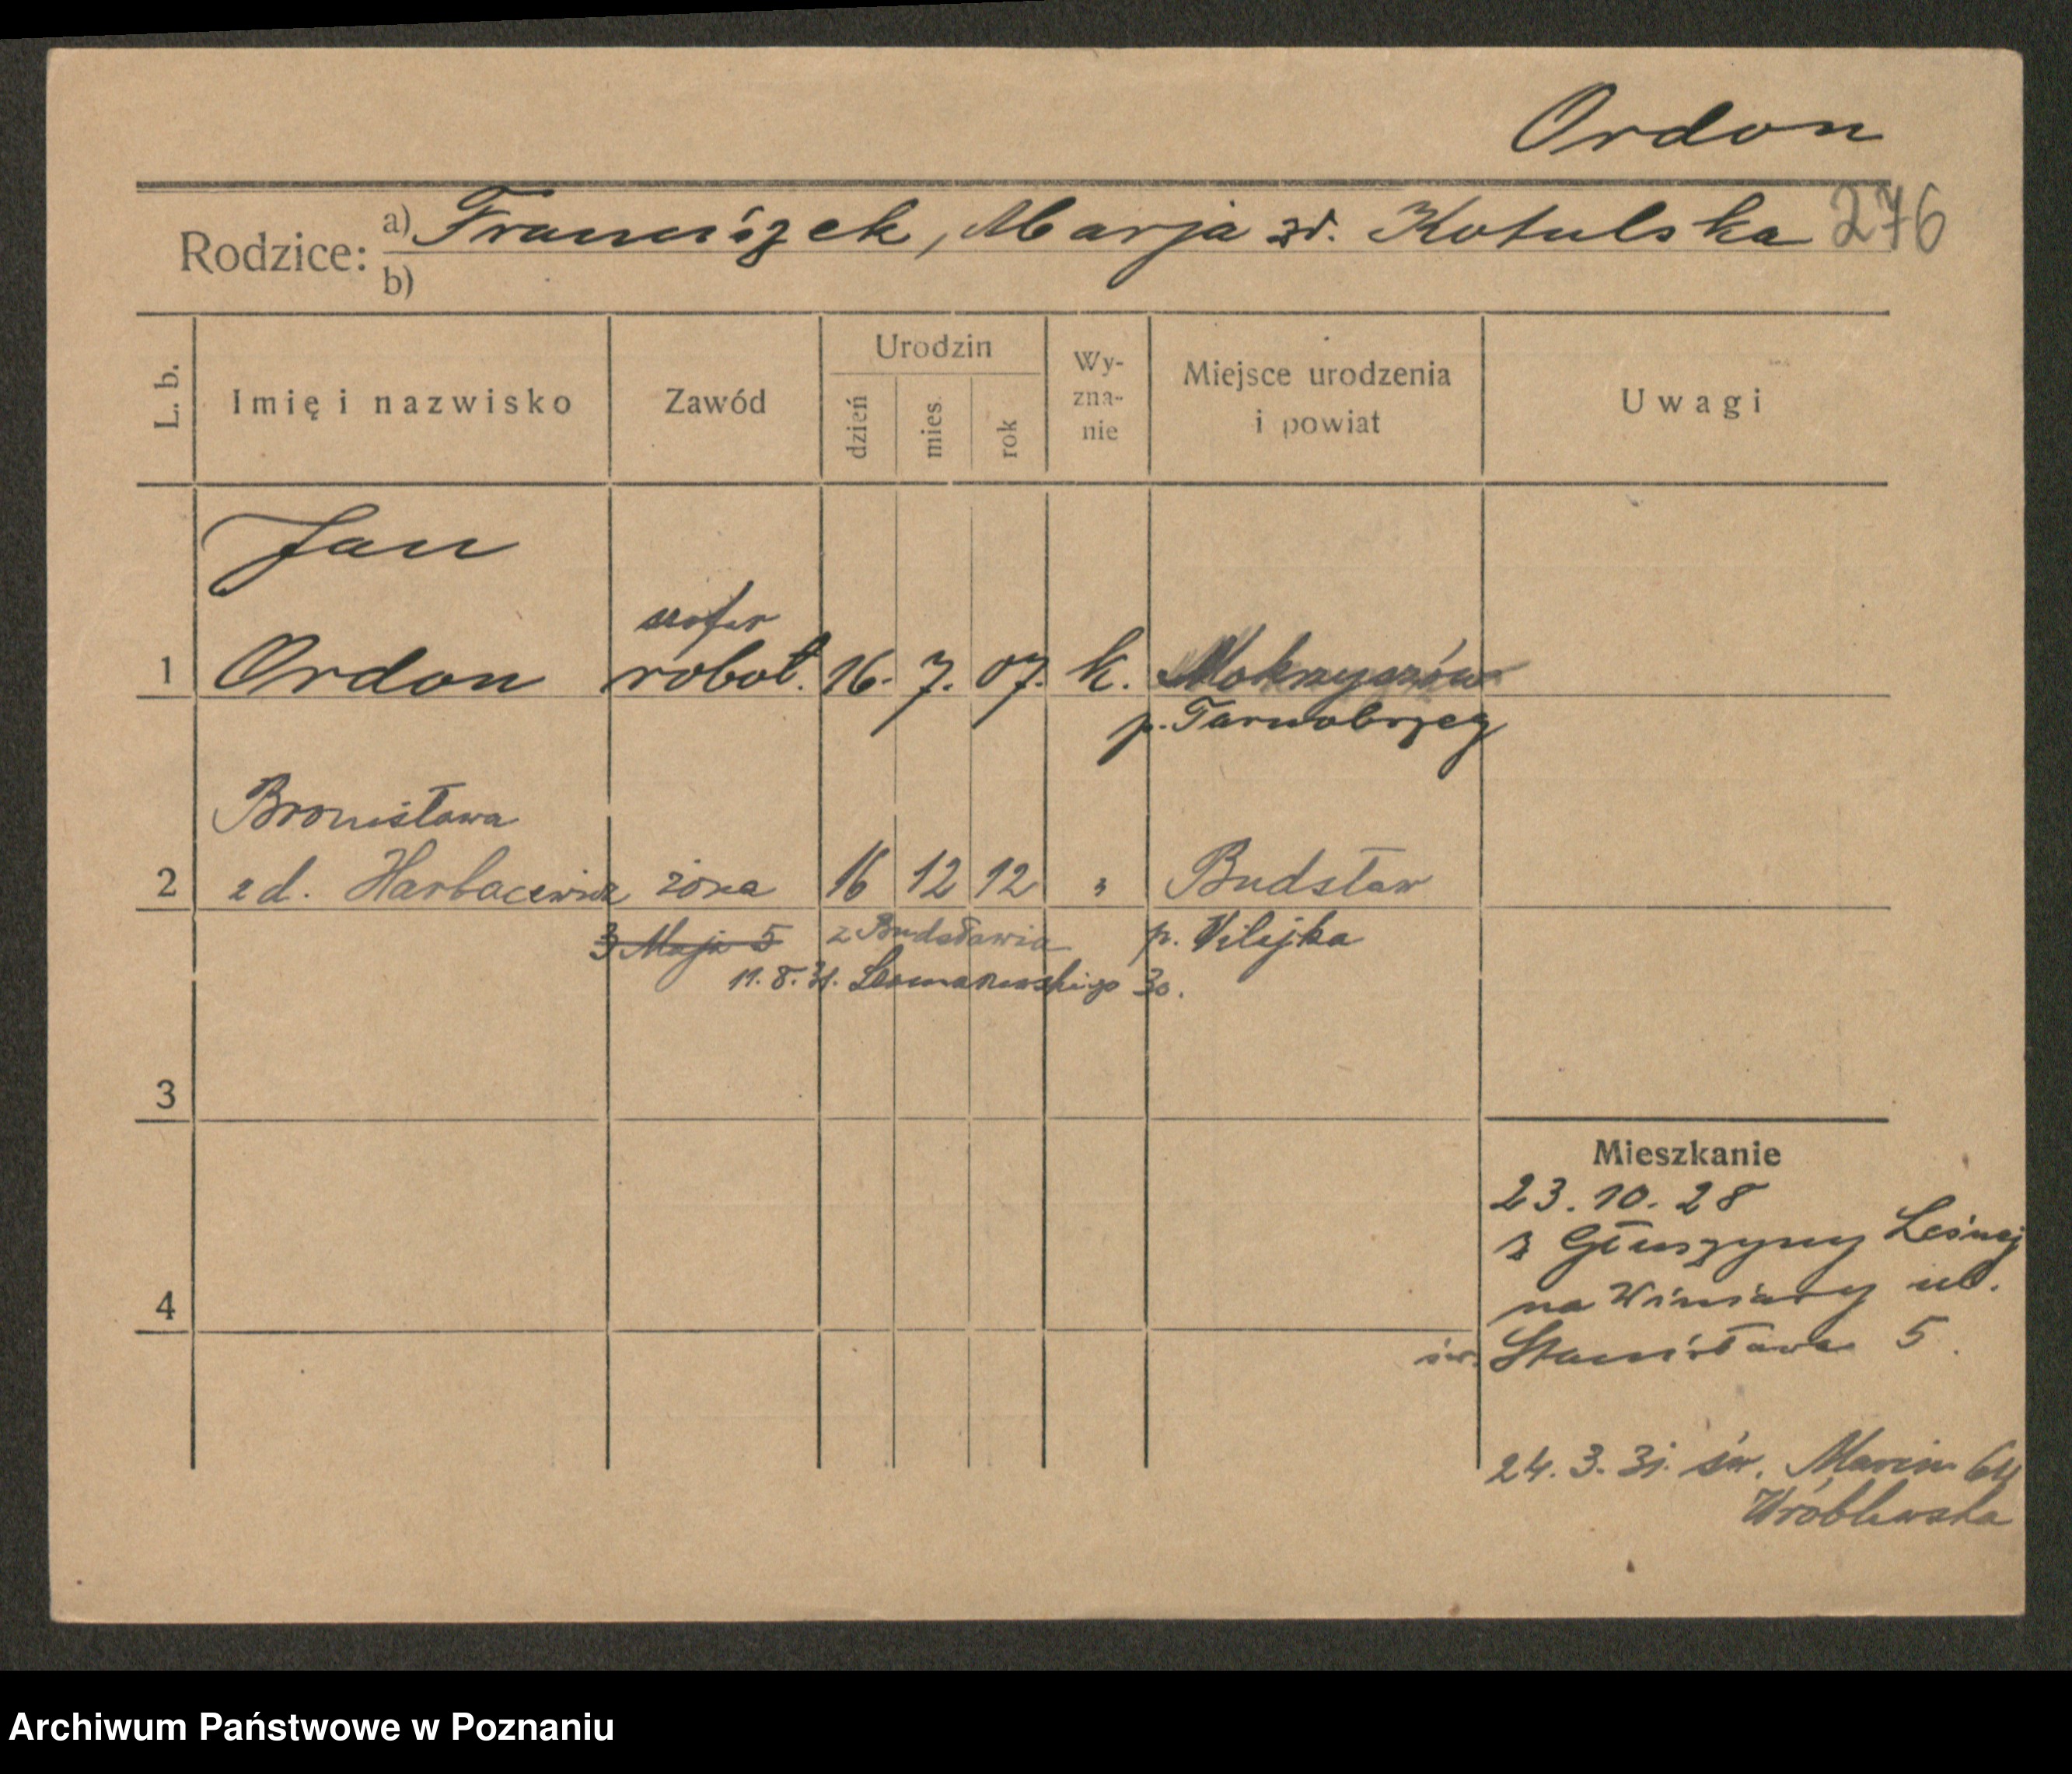 Ordon
Rodzice: a) Franciszek, Marja zd. Kotulska 276
b)
L. b. Imię i nazwisko Zawód Urodzin dzień mies. rok Wy-zna-nie Miejsce urodzenia i powiat Uwagi
Jan
szofer
1 Ordon robot. 16. 7. 07. k. Mokrzyszów
p. Tarnobrzeg
Bronisława
2 zd. Harbacewicz żona 16 12 12 " Budsław
3 Maja 5 z Budsławia p. Wilejka
11.8.31. 30.
3
Mieszkanie
23.10.28
z Głuszyny Leśnej
na Winiary ul.
4
św. Stanisława 5.
24.3.31. św. Marcin 64
Wróblewska
Archiwum Państwowe w Poznaniu